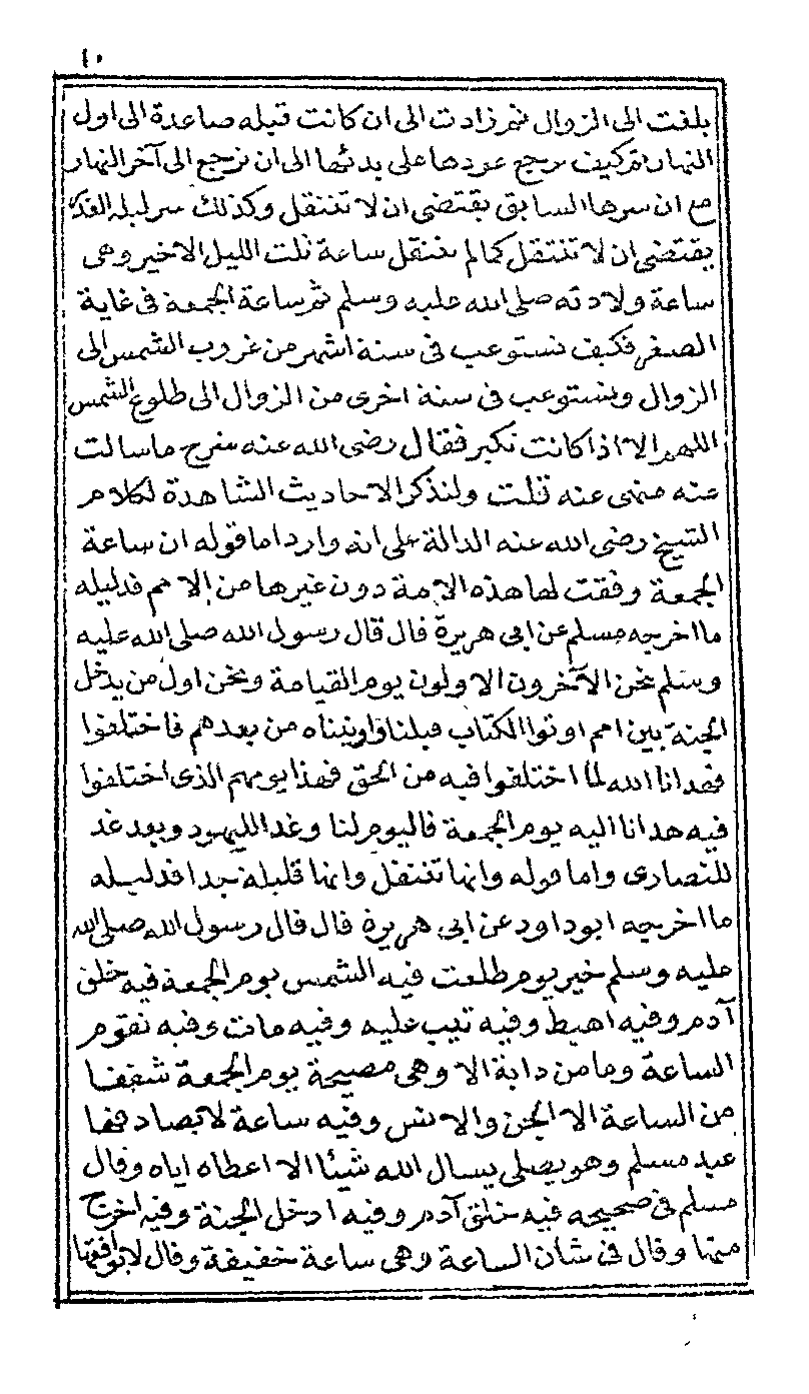 ١٠
بلغت الى الزوال ثم زادت الى ان كانت قبله صاعدة الى اول
النهار ثم كيف يرجع عودها على بدئها الى ان ترجع الى آخر النهار
مع ان سرها السابق يقتضى ان لا تنتقل وكذلك سر ليلة القدر
يقتضى ان لا تنتقل كما لم تنتقل ساعة ثلث الليل الاخير وهى
ساعة ولادته صلى الله عليه وسلم ثم ساعة الجمعة فى غاية
الصغر فكيف تستوعب فى ستة اشهر من غروب الشمس الى
الزوال وتستوعب فى ستة اخرى من الزوال الى طلوع الشمس
اللهم الا اذا كانت تكبر فقال رضى الله عنه شرح ما سالت
عنه منهى عنه قلت ولنذكر الاحاديث الشاهدة لكلام
الشيخ رضى الله عنه الدالة على انه وارد اما قوله ان ساعة
الجمعة وفقت لها هذه الامة دون غيرها من الامم فدليله
ما اخرجه مسلم عن ابى هريرة قال قال رسول الله صلى الله عليه
وسلم نحن الآخرون الاولون يوم القيامة ونحن اول من يدخل
الجنة بين امم اوتوا الكتاب قبلنا واوتيناه من بعدهم فاختلفوا
فهدانا الله لما اختلفوا فيه من الحق فهذا يومهم الذى اختلفوا
فيه هدانا اليه يوم الجمعة فاليوم لنا وغدا لليهود وبعد غد
للنصارى واما قوله وانها تنتقل وانها قليلة جدا فدليله
ما اخرجه ابو داود عن ابى هريرة قال قال رسول الله صلى الله
عليه وسلم خير يوم طلعت فيه الشمس يوم الجمعة فيه خلق
آدم وفيه اهبط وفيه تيب عليه وفيه مات وفيه تقوم
الساعة وما من دابة الا وهى مصيحة يوم الجمعة شفقا
من الساعة الا الجن والانس وفيه ساعة لا يصادفها
عبد مسلم وهو يصلى يسال الله شيئا الا اعطاه اياه وقال
مسلم فى صحيحه فيه خلق آدم وفيه ادخل الجنة وفيه اخرج
منها وقال فى شان الساعة وهى ساعة خفيفة وقال لا يوافقها